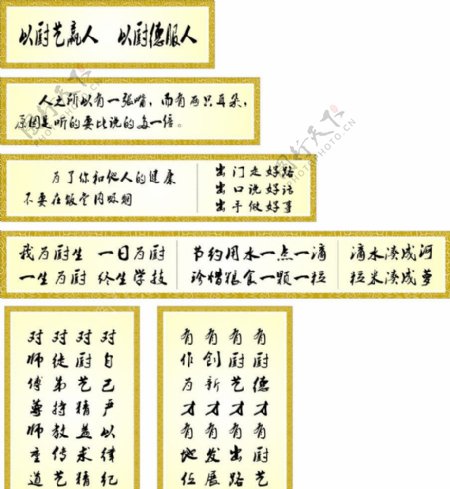 以厨艺赢人 以厨德服人
人之所以有一张嘴，而有两只耳朵，
原因是听的要比说的多一倍。
为了你和他人的健康
不要在饭堂内吸烟
出门走好路
出口说好话
出手做好事
我为厨生 一日为厨
一生为厨 终生学技
节约用水一点一滴
珍惜粮食一颗一粒
滴水凑成河
粒米凑成箩
对自己严以律纪
对厨艺精益求精
对徒弟持教传艺
对师傅尊师重道
有厨德才有厨艺
有厨艺才有出路
有创新才有发展
有作为才有地位